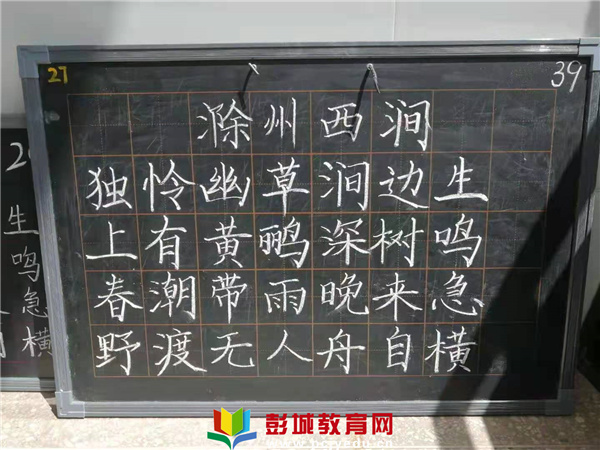 27
39
滁州西涧
独怜幽草涧边生
上有黄鹂深树鸣
春潮带雨晚来急
野渡无人舟自横
生
鸣
急
横
彭城教育网